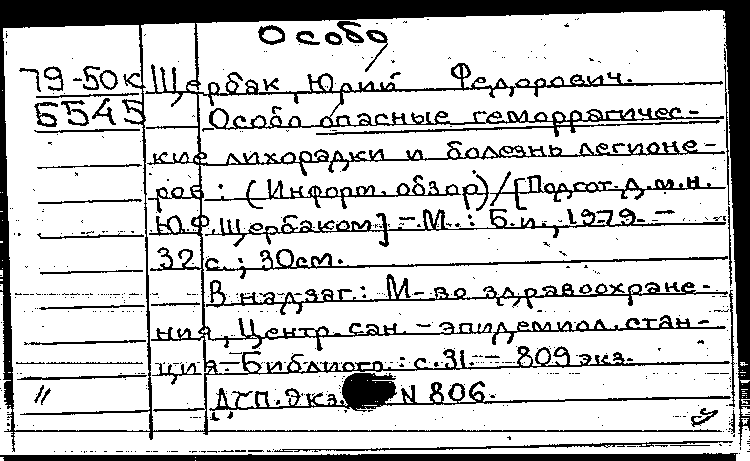 Особо
79-50к Щербак, Юрий Федорович.
6545 Особо опасные геморрагичес-
кие лихорадки и болезнь легионе-
ров : (Информ. обзор) / [Подгот. д.м.н.
Ю.Ф. Щербаком] - М. : Б.и., 1979. -
32 с. ; 30см.
В надзаг.: М-во здравоохране-
ния, Центр. сан. - эпидемиол. стан-
ция. - Библиогр.: с. 31. - 809 экз.
Экз. N 806.